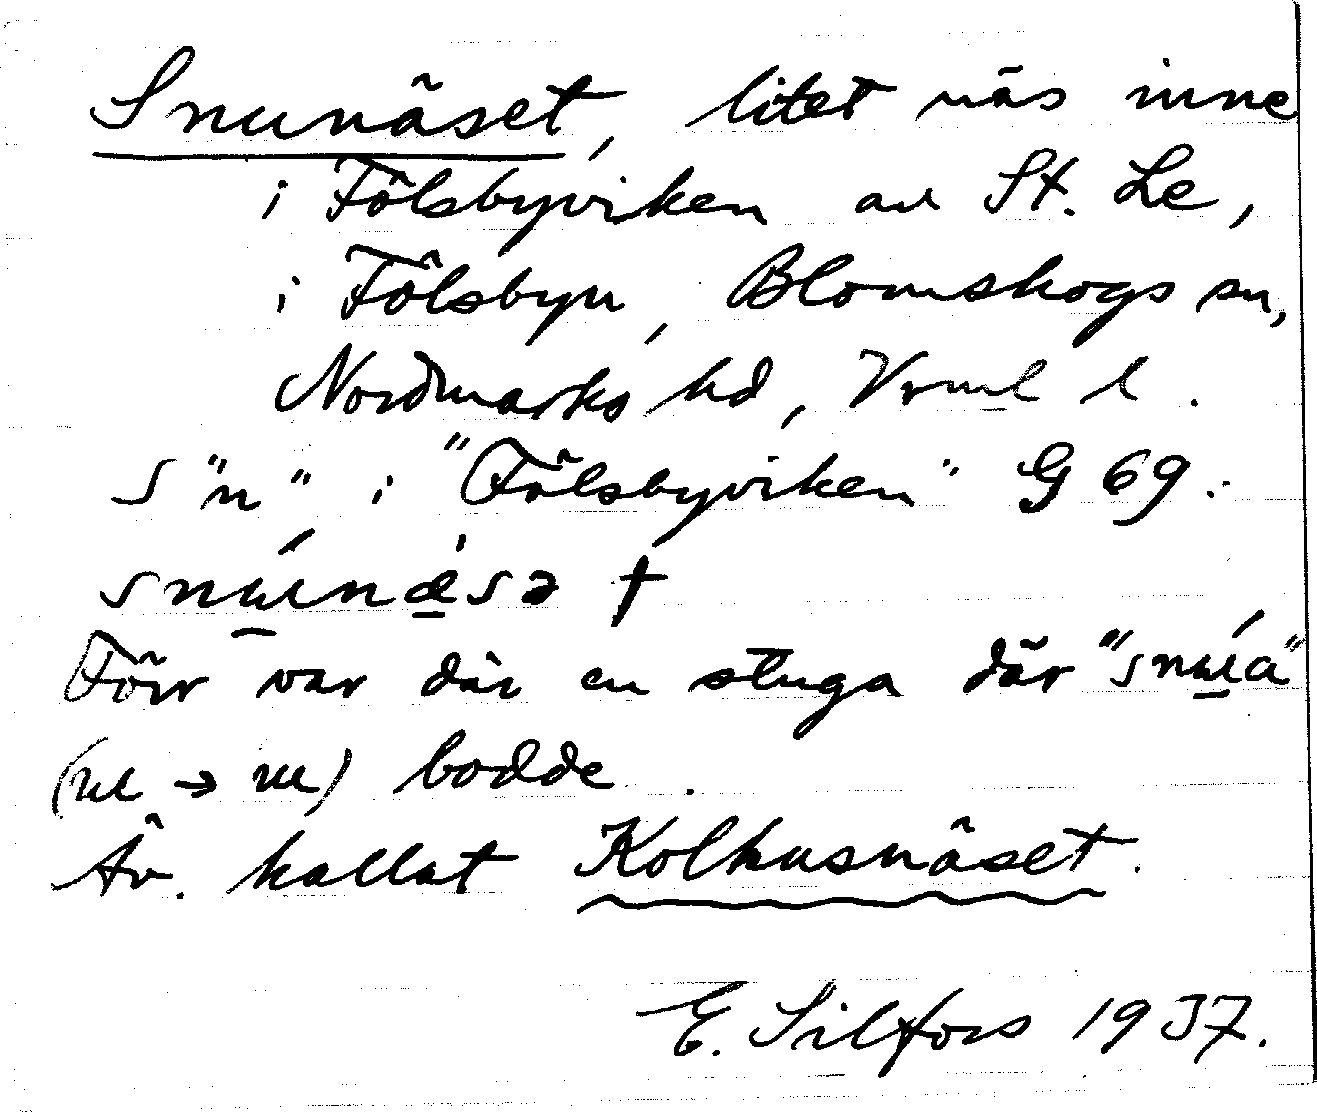 Snunäset, litet näs inne
i Fölsbyviken av St. Le,
i Fölsbyn, Blomskogs sn,
Nordmarks hd, Vrml l.
S "n" i "Fölsbyviken" G 69.
snúnæsə †
Förr var där en stuga där "snúa"
bodde.
Äv. kallat Kolhusnäset.
E. Silfors 1937.